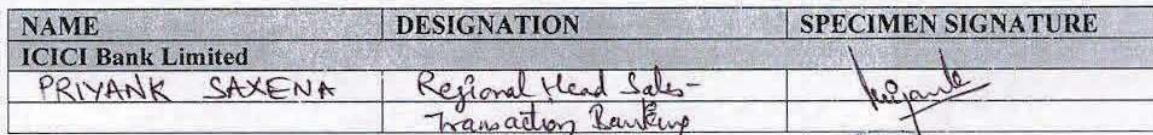 NAME DESIGNATION SPECIMEN SIGNATURE
ICICI Bank Limited
PRIYANK SAXENA Regional Head Sales-
Transaction Banking